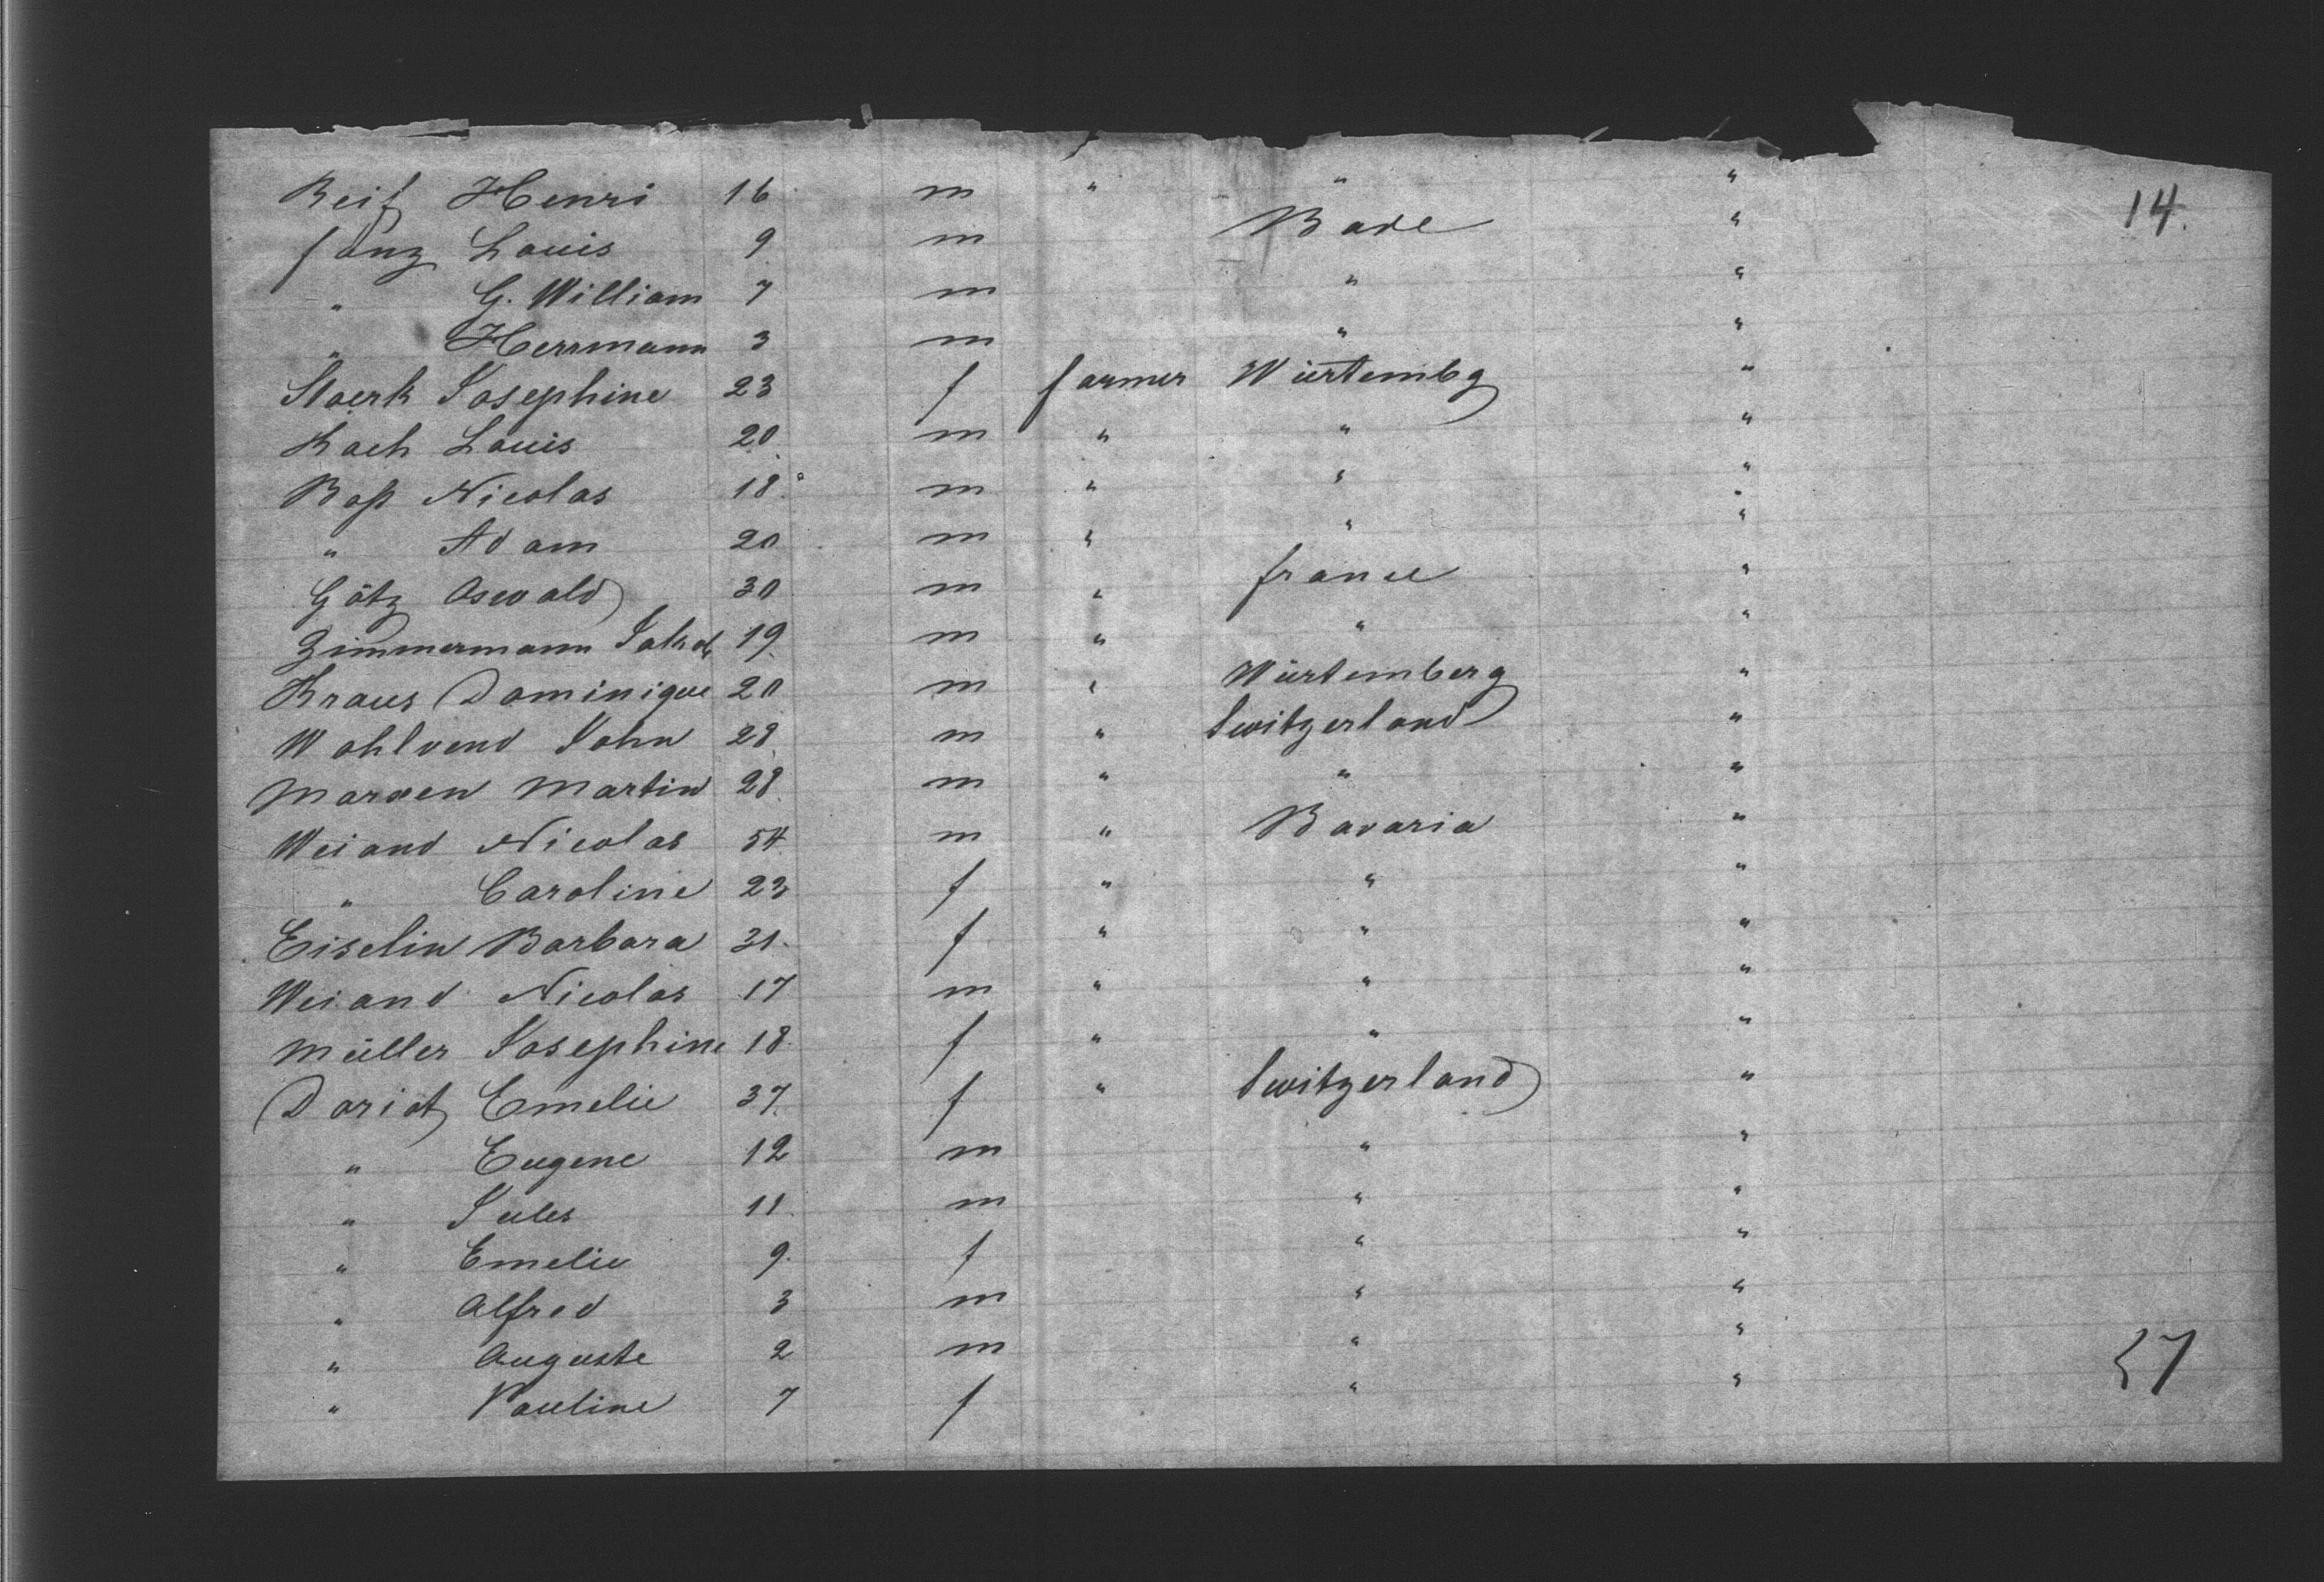 Reif Henri 16 m " " " 14.
fünz Louis 9 m Bade "
" G. William 7 m " "
" Herrmann 3 m " "
Stoerk Josephine 23 f farmer Würtembg "
Koch Louis 20 m " " "
Bop Nicolas 18 m " " "
" Adam 20 m " " "
Götz Oswald 30 m " france "
Zimmermann Jakob 19 m " " "
Kraus Dominique 20 m " Würtemberg "
Wohlvend John 28 m " Switzerland "
Marxen Martin 28 m " " "
Weiand Nicolas 54 m " Bavaria "
" Caroline 23 f " " "
Eiselin Barbara 31 f " " "
Weiand Nicolas 17 m " " "
Müller Josephine 18 f " " "
Doriot Emelie 37 f " Switzerland "
" Eugene 12 m " "
" Jules 11 m " "
" Emelie 9 f " "
" Alfred 3 m " "
" Auguste 2 m " "
" Pauline 7 f " "
57